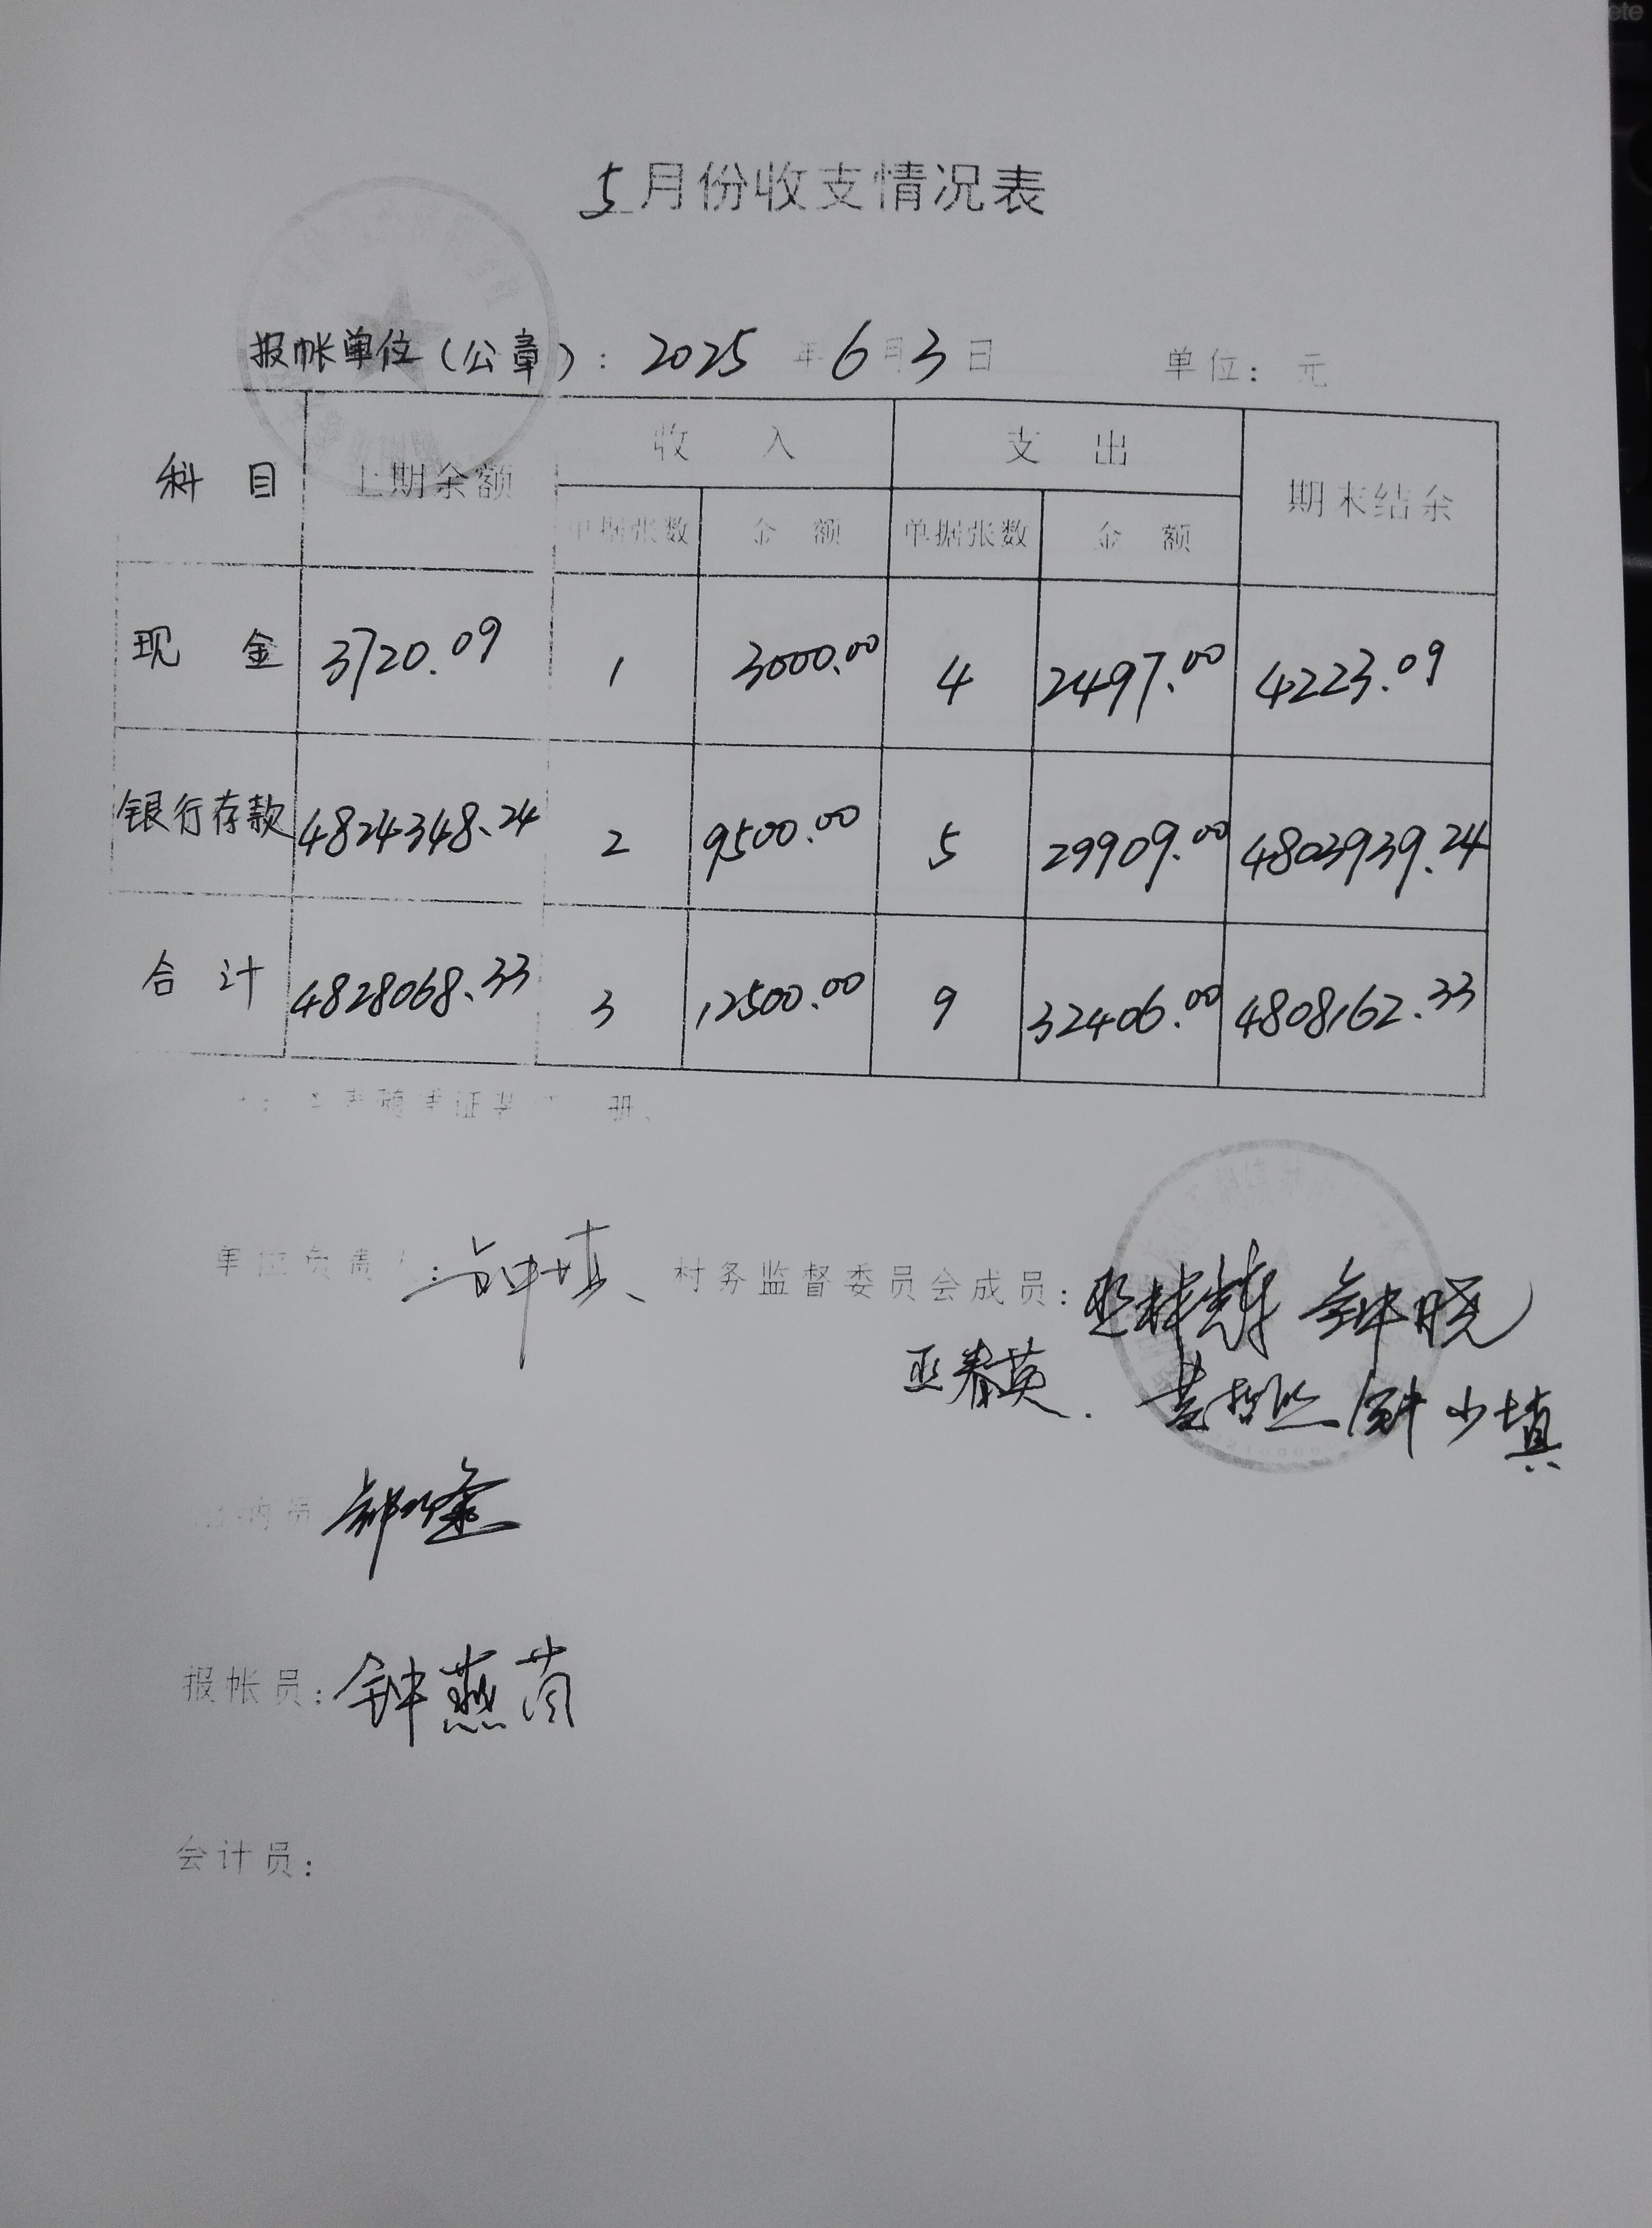 5月份收支情况表
报帐单位(公章): 2025年6月3日 单位: 元
科目 上期余额 收入 支出 期末结余
单据张数 金额 单据张数 金额
现金 3720.09 1 3000.00 4 2497.00 4223.09
银行存款 4824348.24 2 9500.00 5 29909.00 4803939.24
合计 4828068.33 3 12500.00 9 32406.00 4808162.33
册、
单位负责人: 村务监督委员会成员: 钟晓
春英 钟少填
纳员
报帐员: 钟燕茼
会计员: